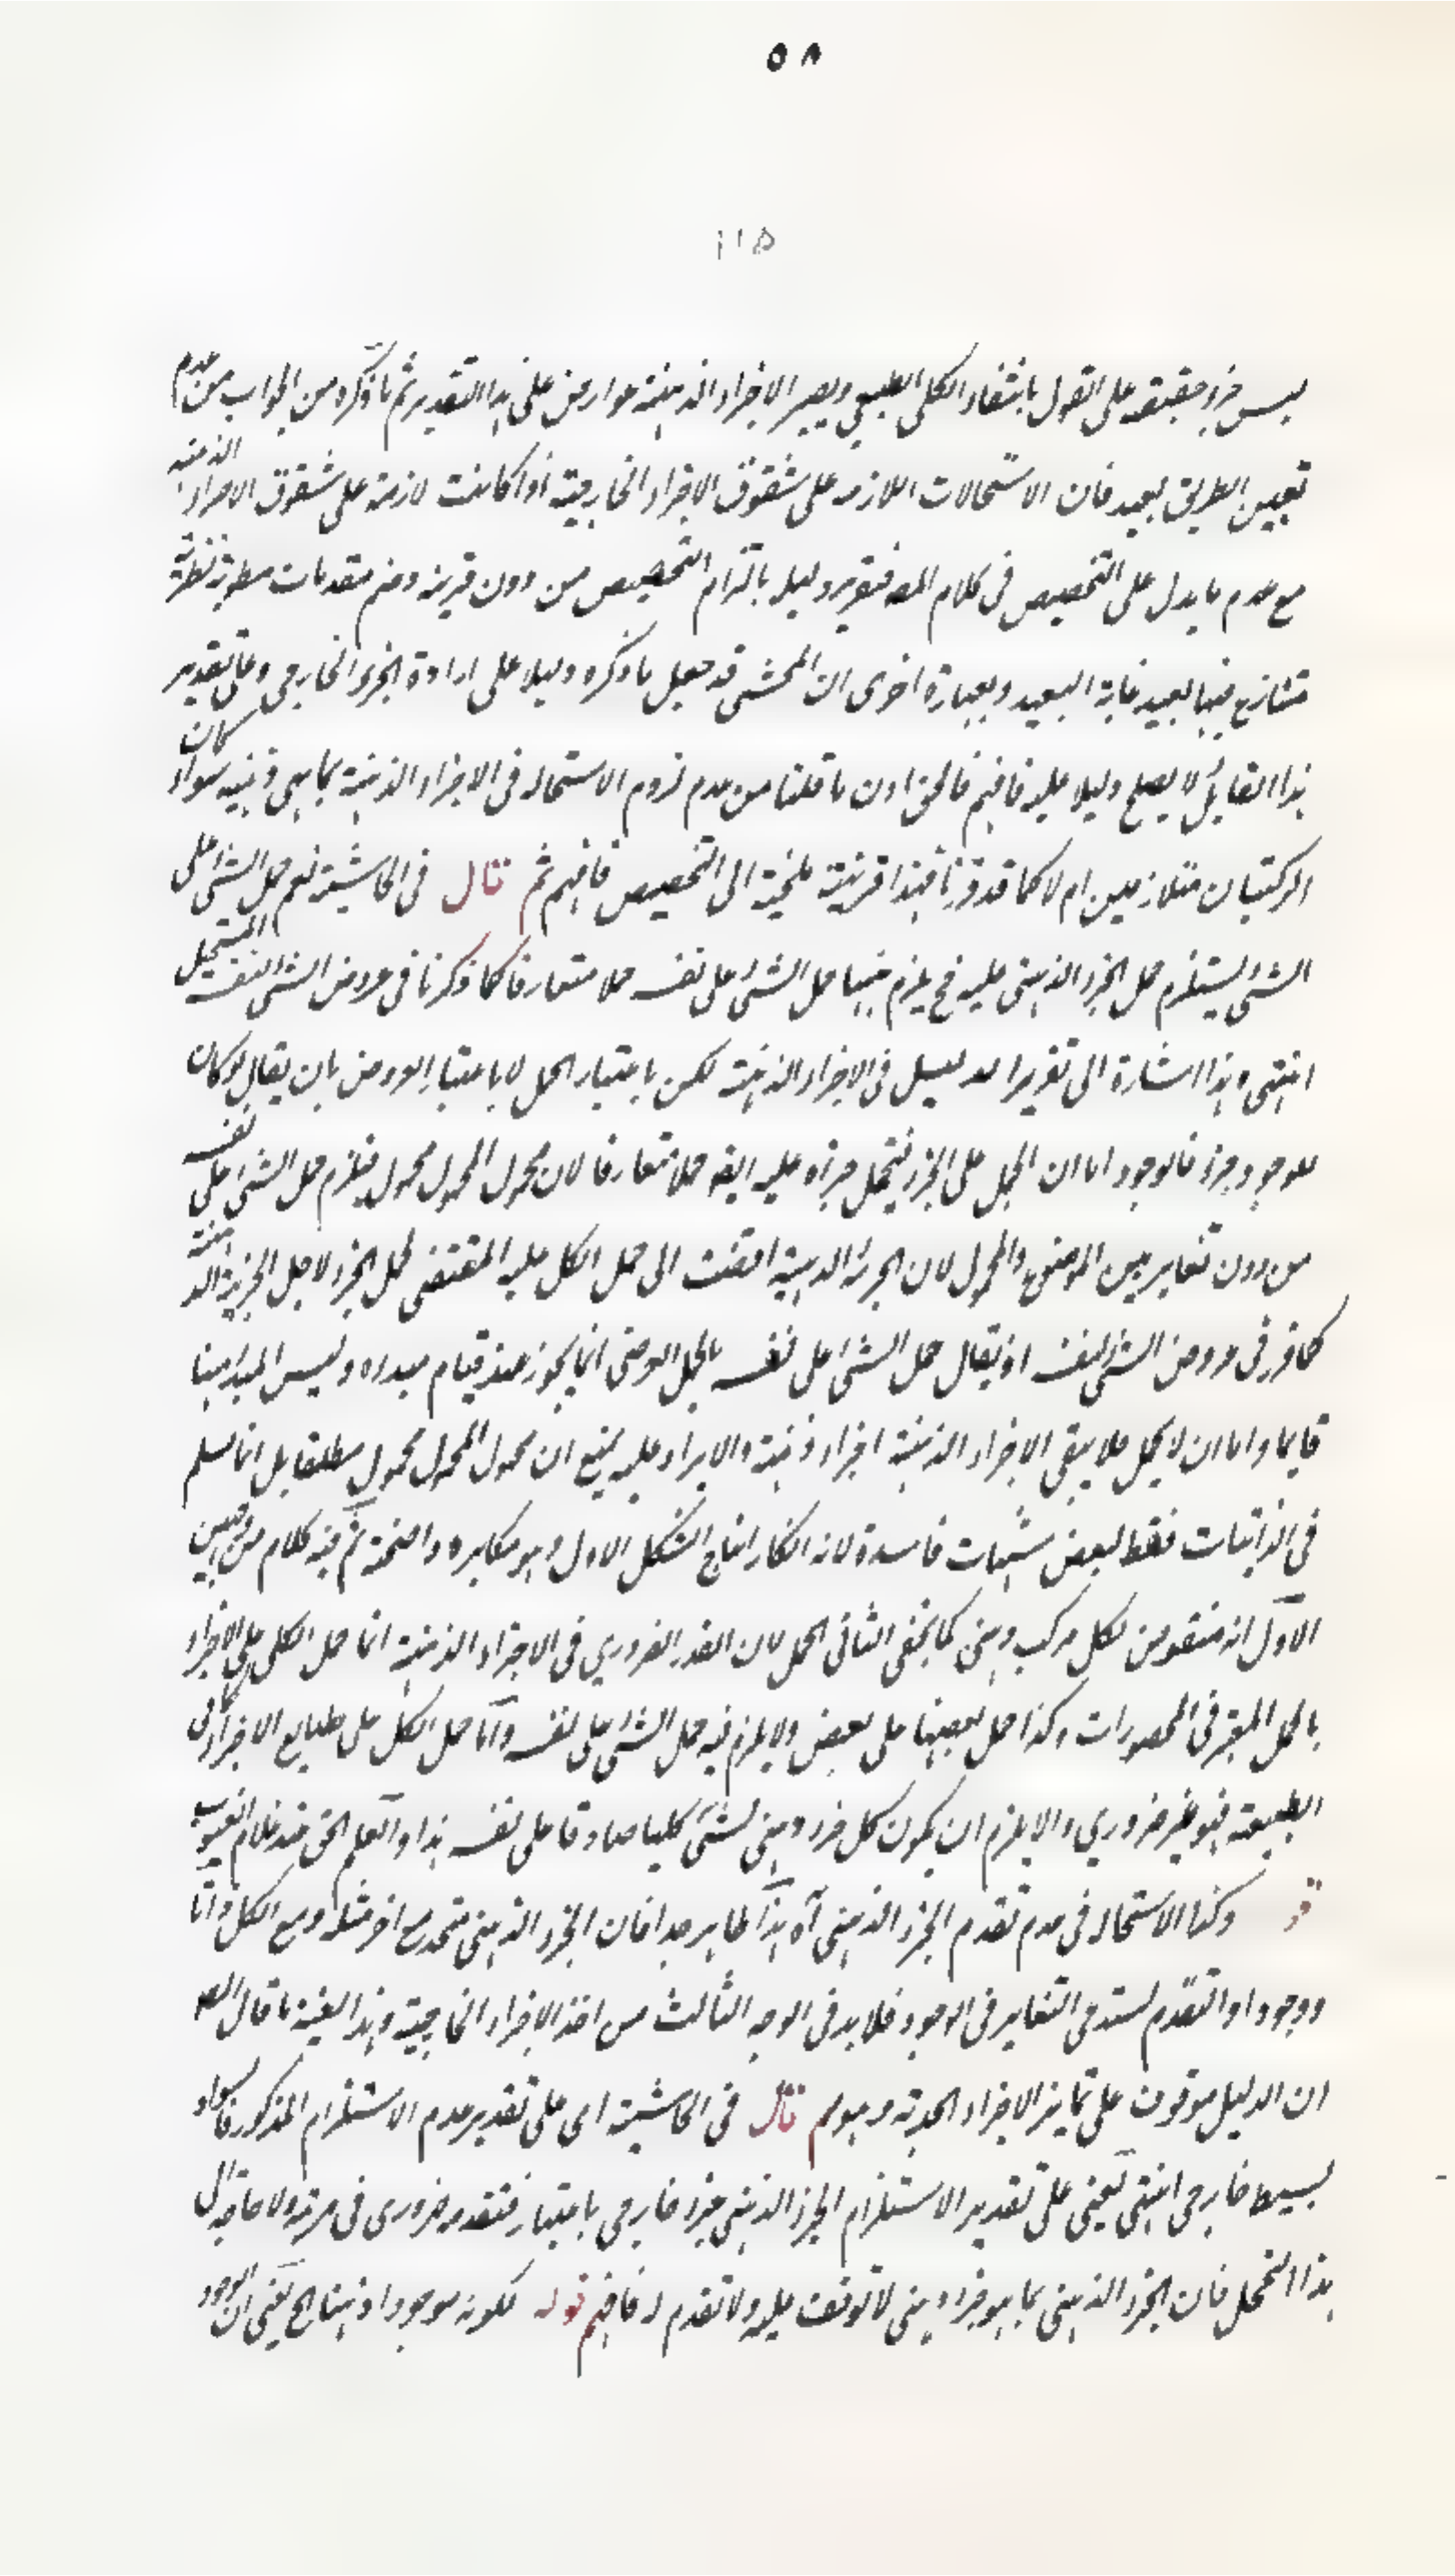 ٥٨
١١٥
ليس جزء حقيقة على القول بانتفاء الكلى الطبيعى ويصير الاجزاء الذهنية عوارض على هذا التقدير ثم ما ذكره من الجواب من عدم
تعيين الطريق بعيد فان الاستحالات اللازمه على شقوق الاجزاء الخارجية اذا كانت لازمة على شقوق الاجزاء الذهنية
مع عدم ما يدل على التخصيص فى كلام المصـ فتقرير دليل بالتزام التخصيص من دون قرينه وضم مقدمات مطوية نظرية
متنازع فيها بعيد غاية البعيد وبعبارة اخرى ان المحشى قد جعل ما ذكره دليلا على ارادة الجزء الخارجى وعلى تقدير
هذا القايل لا يصلح دليلا عليه فافهم فالحق اذن ما قلنا من عدم لزوم الاستحاله فى الاجزاء الذهنية بما هى ذهنيه سواء كان
التركيبان متلازمين ام لا كما قد قررنا فهذا قرينة ملجية الى التخصيص فافهم ثم قال فى الحاشية نعم حمل الشئ على
الشئ يستلزم حمل الجزء الذهنى عليه فح يلزم ههنا حمل الشئ على نفسه حملا متعارفا كما ذكرنا فى عروض الشئ لنفسه المستحيل
انتهى وهذا اشارة الى تقرير الدليل فى الاجزاء الذهنية لكن باعتبار الحمل لا باعتبار العروض بان يقال لو كان
للوجود جزء فالوجود اما ان يحمل على الجزء فيحمل جزئه عليه ايضه حملا متعارفا لان محمول المحمول محمول فيلزم حمل الشئ على نفسه
من دون تغاير بين الموضوع والمحمول لان الجزئية الذهنية افضت الى حمل الكل عليه المقتضى لحمل الجزء لاجل الجزئية الذهنية
كما قرر فى عروض الشئ لنفسه او يقال حمل الشئ على نفسه بالحمل العرضى انما يجوز عند قيام مبدءه وليس المبدء ههنا
قايما واما ان لا يحمل فلا يبقى الاجزاء الذهنية اجزاء ذهنية والايراد عليه بمنع ان محمول المحمول محمول مطلقا بل انما نسلم
فى الذاتيات فقط لبعض شبهات فاسدة لانه انكار انتاج الشكل الاول وهو مكابره واضحة ثم فيه كلام من وجهين
الاول انه منقوض بكل مركب ذهنى كما لا يخفى الثانى الحمل لان القدر الضرورى فى الاجزاء الذهنية انما حمل الكلى على الاجزاء
بالحمل المعتبر فى المحصورات وكذا حمل بعضها على بعض ولا يلزم فيه حمل الشئ على نفسه واما حمل الكل على طبايع الاجزاء كما فى
الطبيعة فهو غير ضرورى والا يلزم ان يكون كل جزء ذهنى لشئ كليا صادقا على نفسه هذا والعلم الحق عند علام الغيوب
قو وكذا الاستحاله فى عدم تقدم الجزء الذهنى آه هذا ظاهر جدا فان الجزء الذهنى متحد مع اخر مثله ومع الكل ذاتا
ووجودا والتقدم يستدعى التغاير فى الوجود فلابد فى الوجه الثالث من اخذ الاجزاء الخارجية وهذا بعينه ما قال المصـ
ان الدليل موقوف على تمايز الاجزاء الحدية وهو مم قال فى الحاشية اى على تقدير عدم الاستلزام المذكور فالسواد
بسيط خارجى انتهى يعنى على تقدير الاستلزام الجزء الذهنى جزء خارجى باعتبار فتقدمه ضرورى فى مرتبة ولا حاجة الى
هذا التمحل فان الجزء الذهنى بما هو جزء ذهنى لا توقف عليه ولا تقدم له فافهم قوله لكونه موجودا ذهنيا الخ يعنى ان الوجود